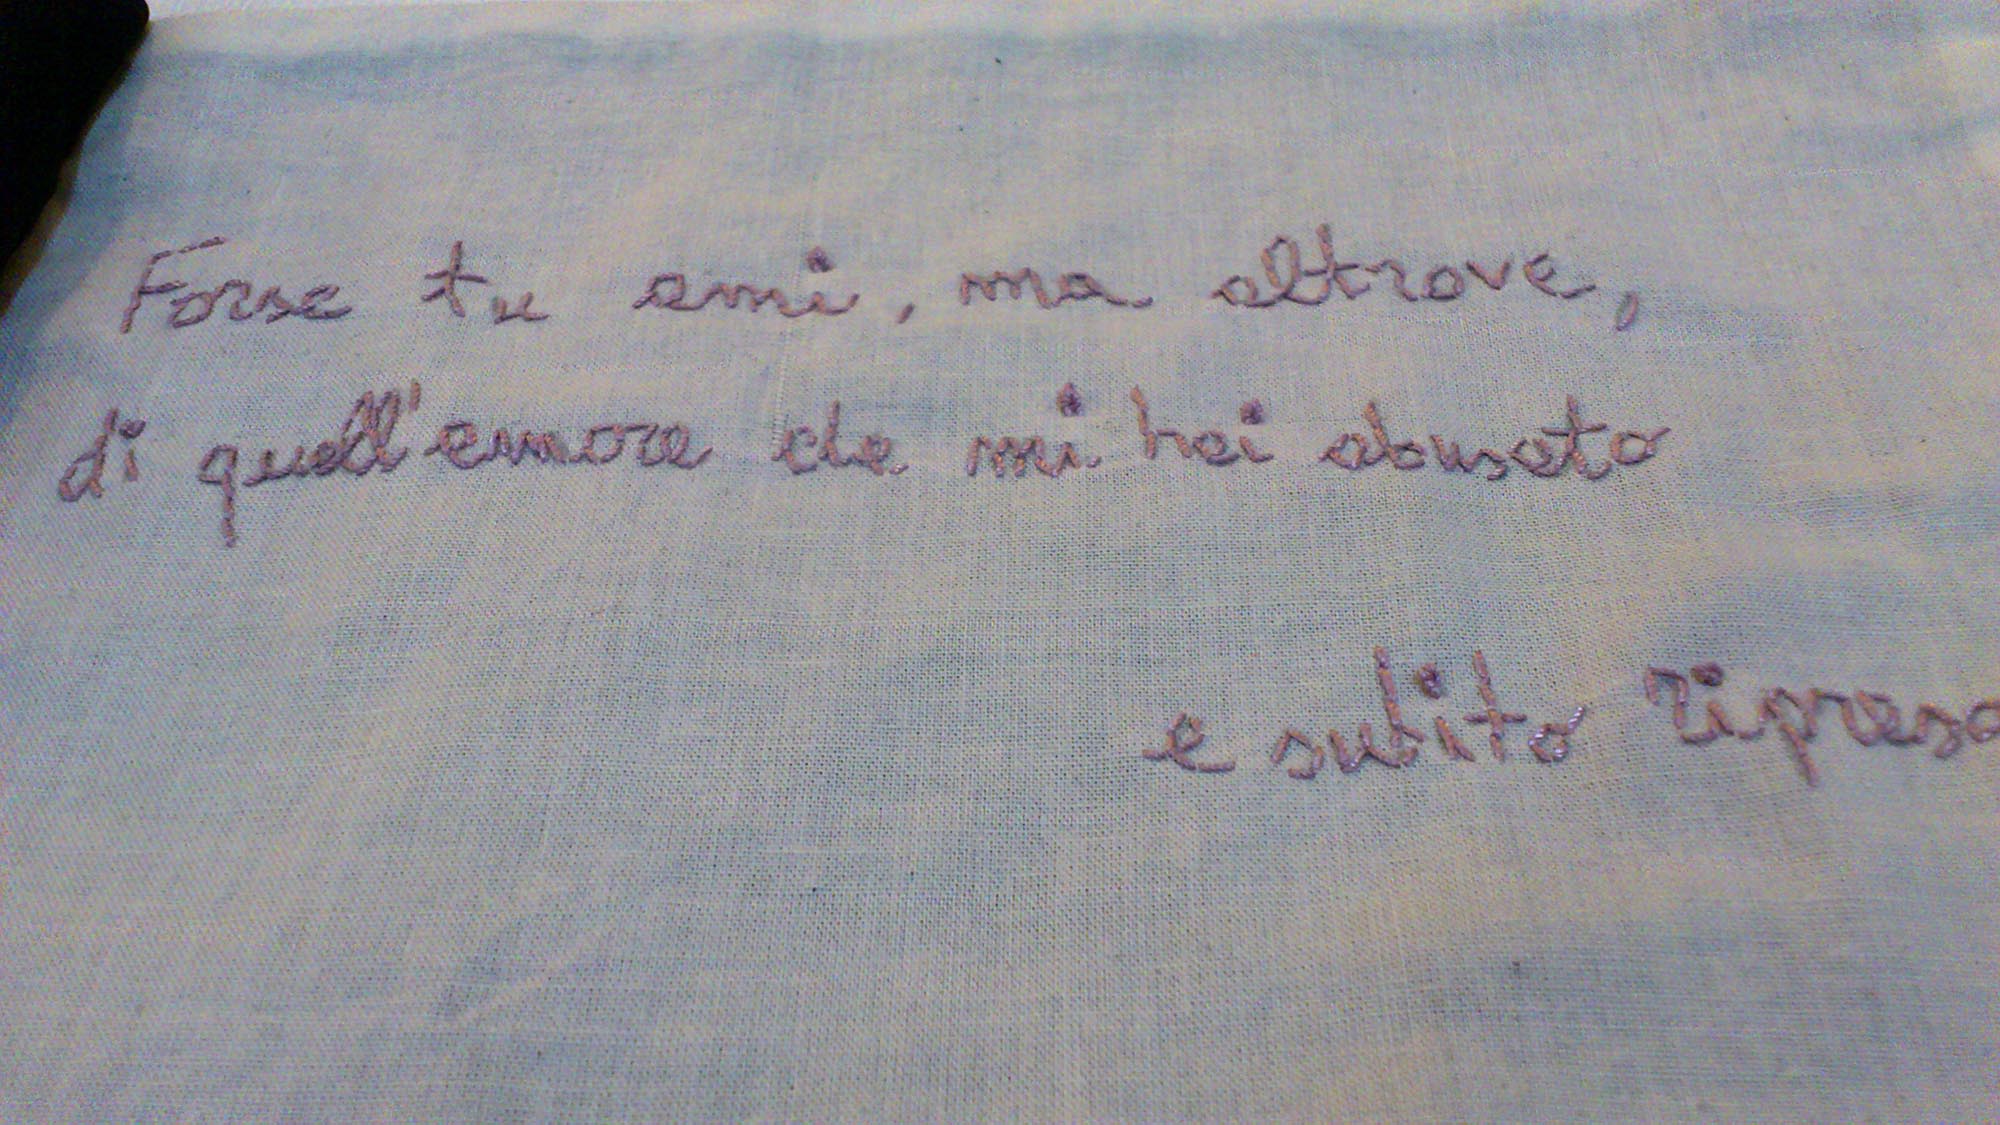 Forse tu ami, ma altrove,
di quell'amore che mi hai abusato
e subito ripreso